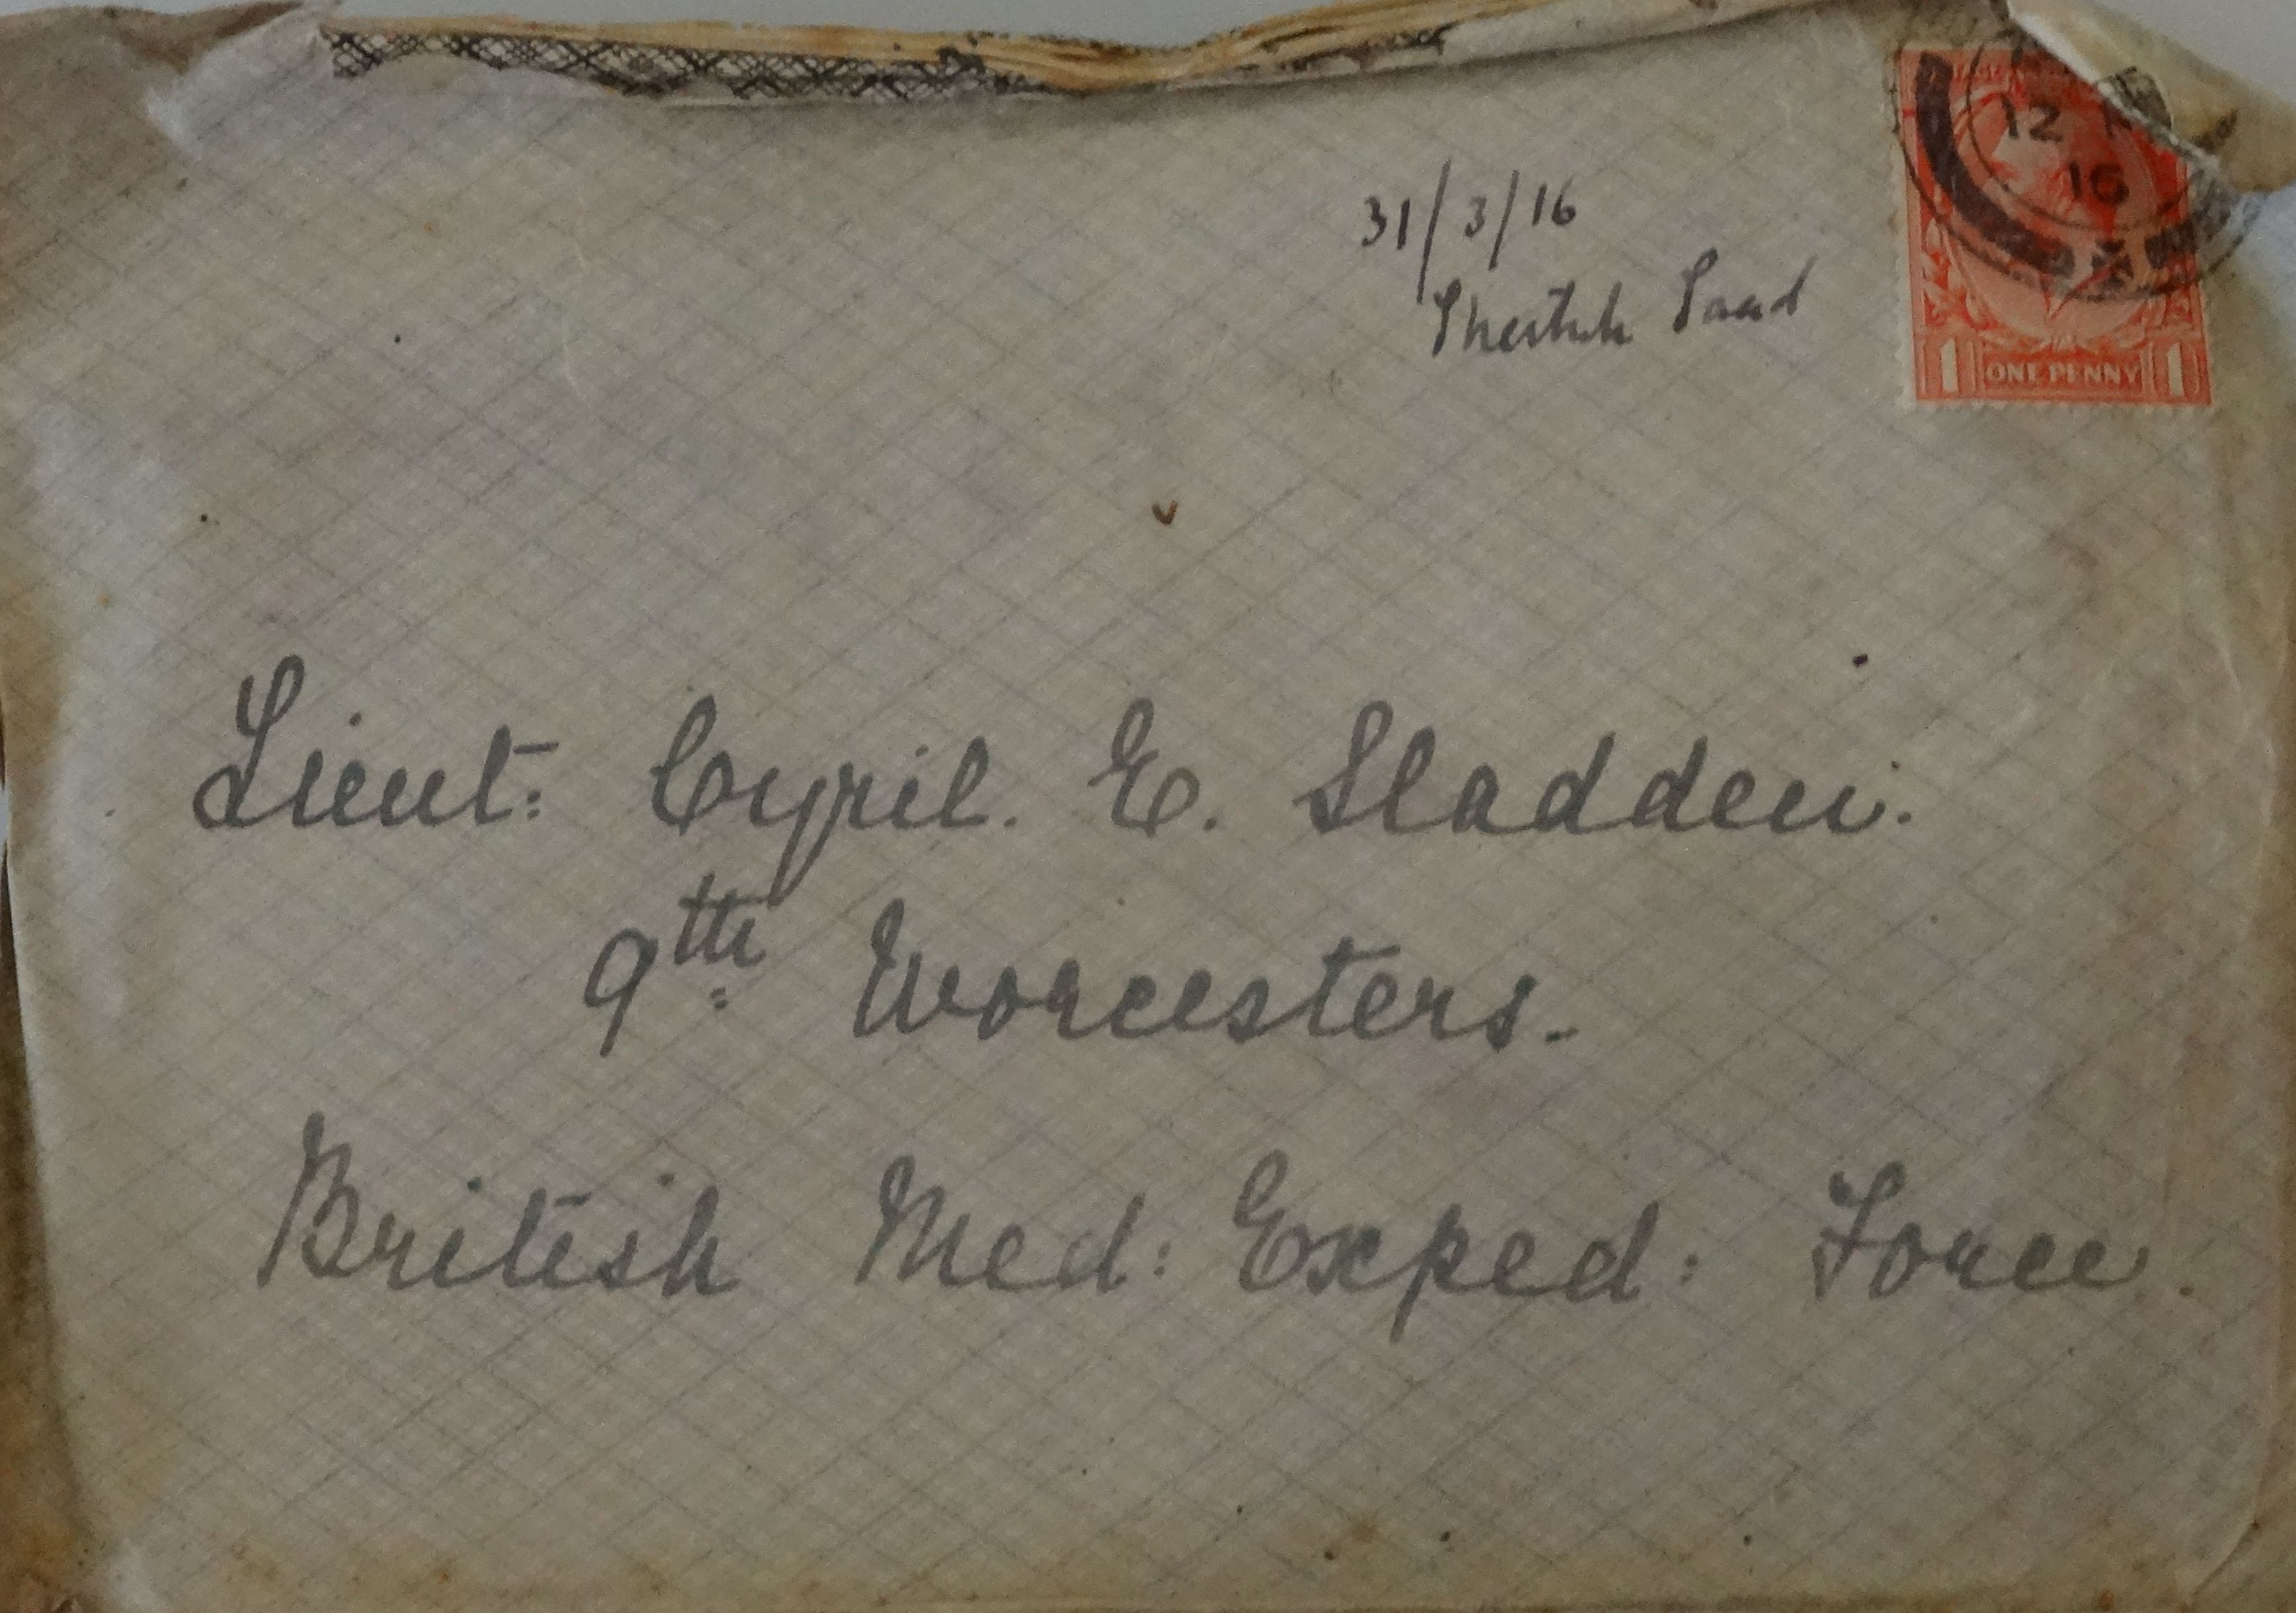 12
16
31/3/16
Sheikh Saad
1 ONE PENNY 1
Lieut: Cyril. E. Sladden.
9th Worcesters.
British Med: Exped: Force.